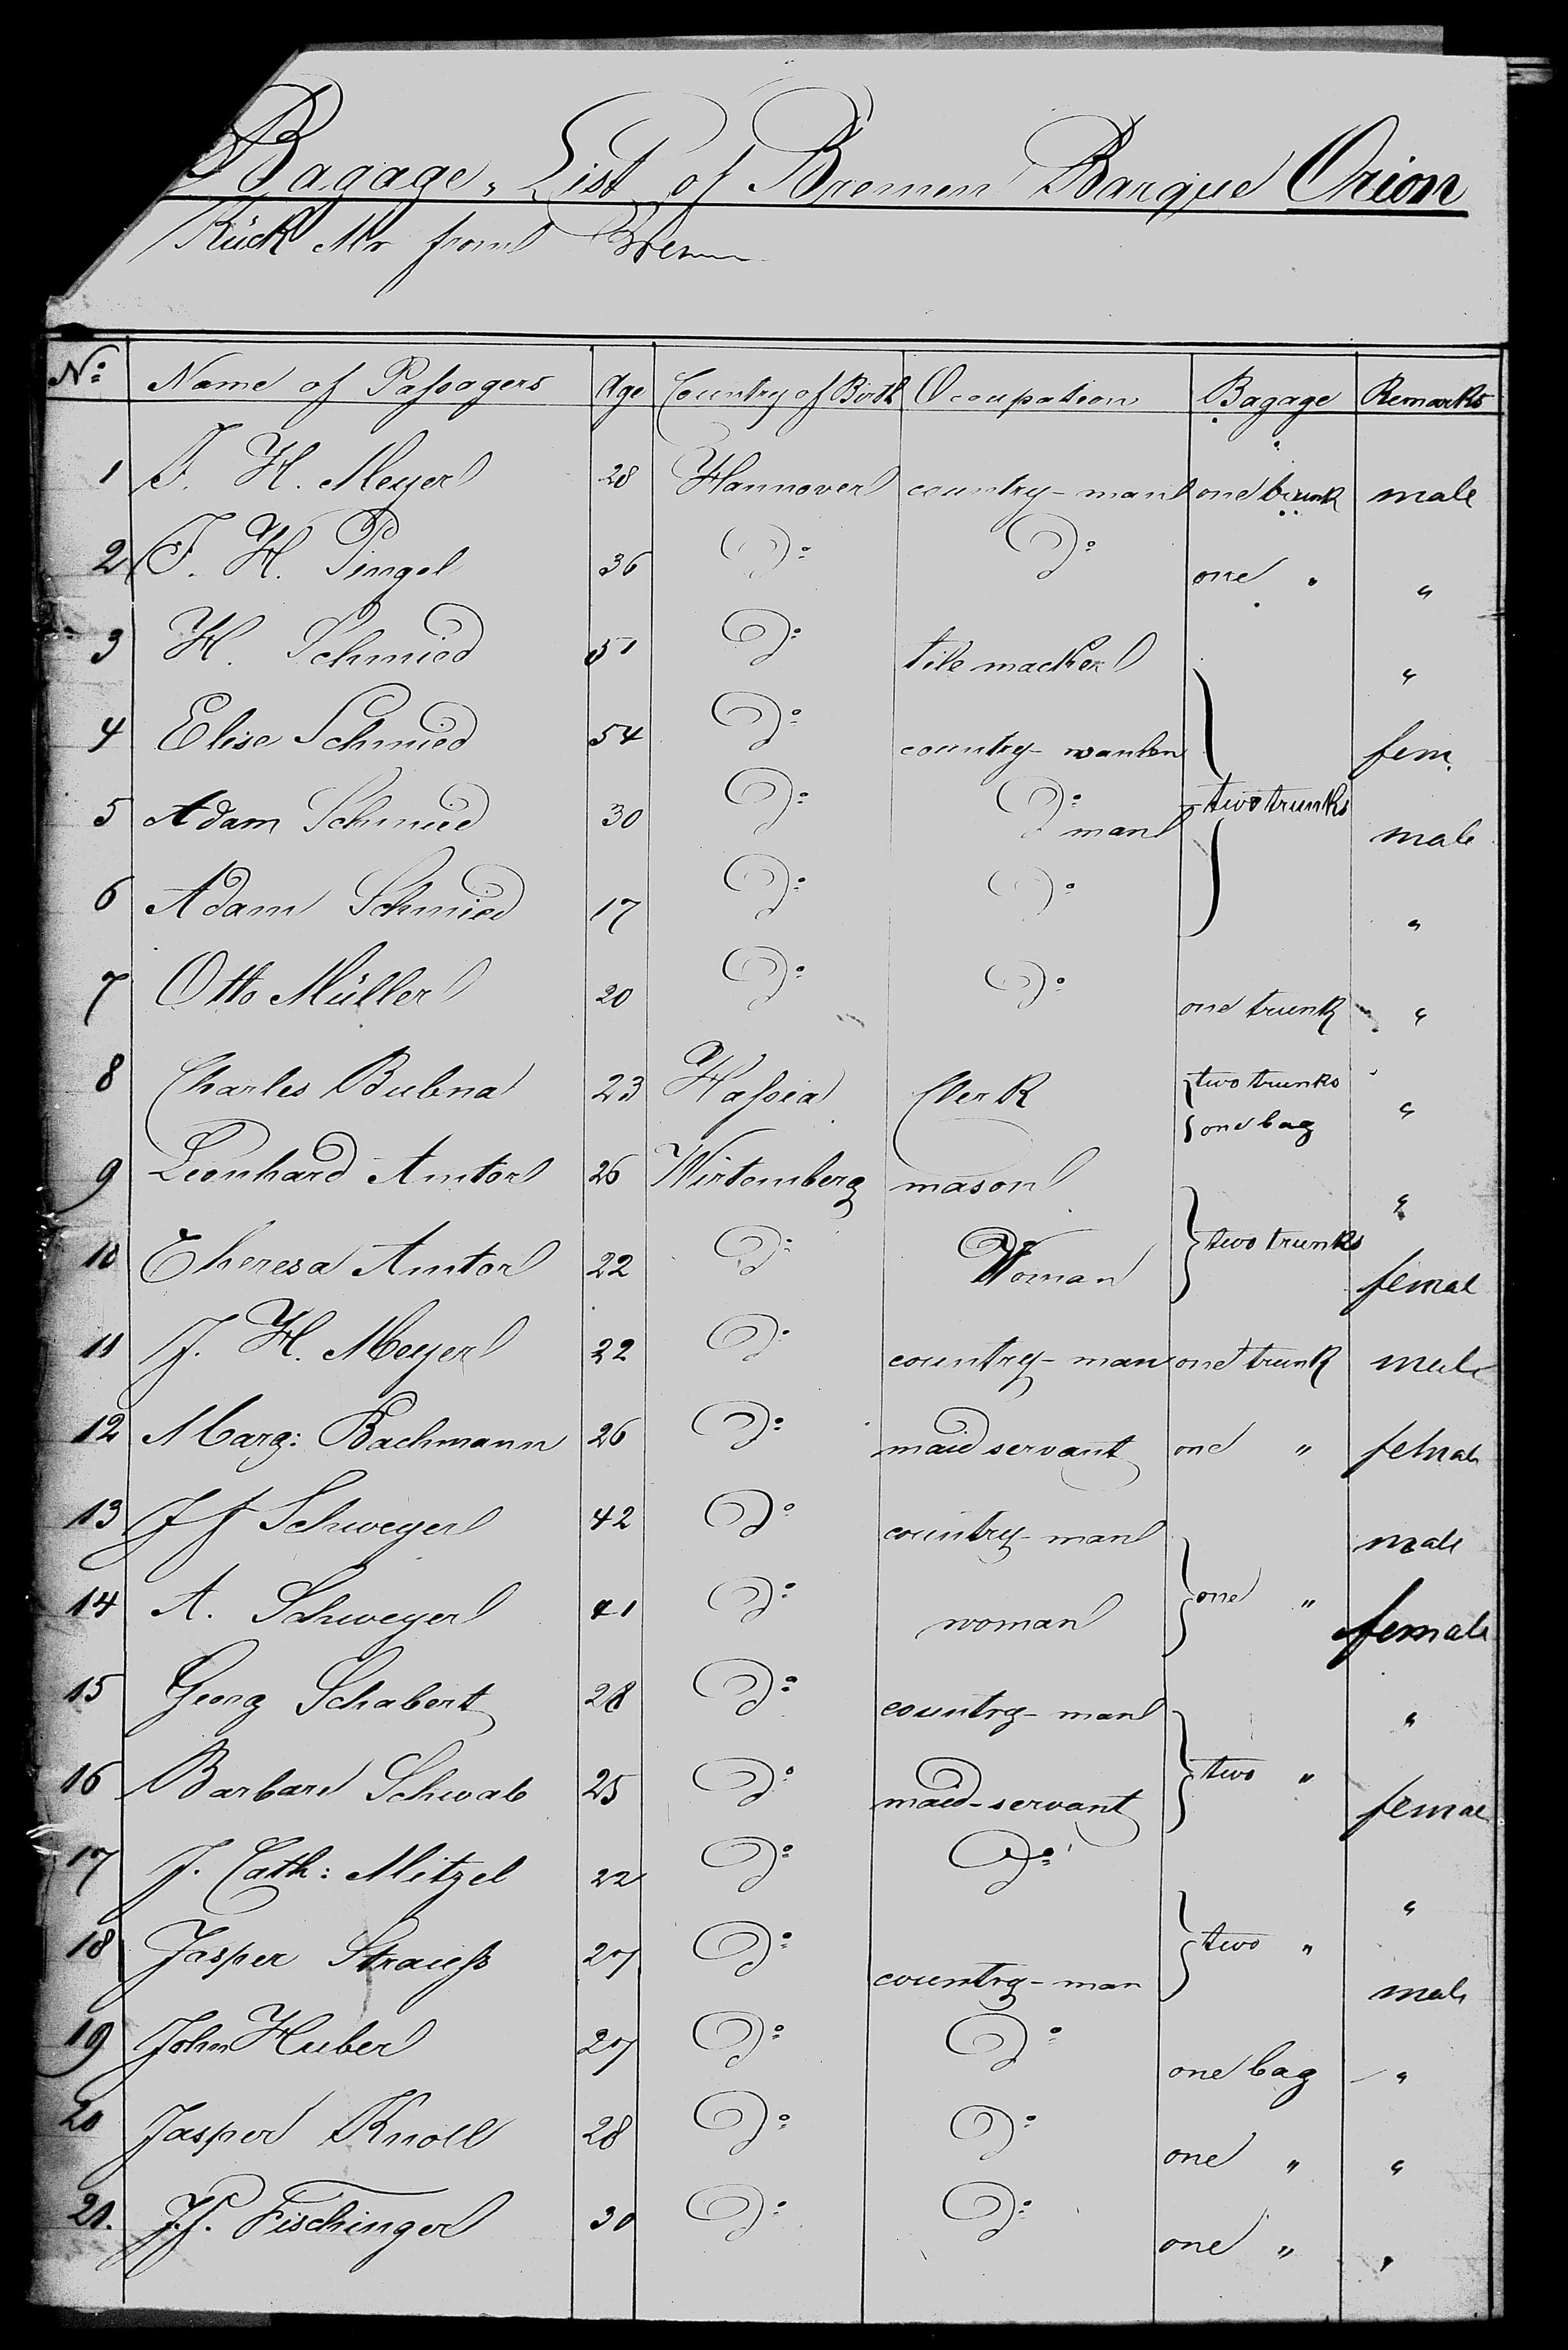 Bagage, List of Bremen Barque Orion
Rück Mr from Bremen
No: Name of Passagers Age Country of Birth Occupation Bagage Remarks
1 J. H. Meyer 28 Hannover country-man one trunk male
2 J. H. Pingel 36 Do: Do: one " "
3 H. Schmied 51 Do: tile macker "
4 Elise Schmied 54 Do: country- fem.
two trunks
5 Adam Schmied 30 Do: Do: man male
6 Adam Schmied 17 Do: Do: "
7 Otto Müller 20 Do: Do: one trunk "
8 Charles Bubna 23 Hassia Clerk two trunks "
one bag
9 Leonhard Amtor 26 Wirtemberg mason "
two trunks
10 Theresa Amtor 22 Do: Woman femal
11 J. H. Meyer 22 Do: country-man one trunk male
12 Marg: Bachmann 26 Do: maid servant one " female
13 J J Schweyer 42 Do: country-man male
14 A. Schweyer 41 Do: woman one " female
15 Georg Schabert 28 Do: country-man "
16 Barbara Schwab 25 Do: maid-servant two " female
17 J. Cath: Mitzel 22 Do: Do: "
18 Jasper Strauss 27 Do: country-man two " male
19 John Huber 27 Do: Do: one bag "
20 Jasper Knoll 28 Do: Do: one " "
21. J. J. Fischinger 30 Do: Do: one " "